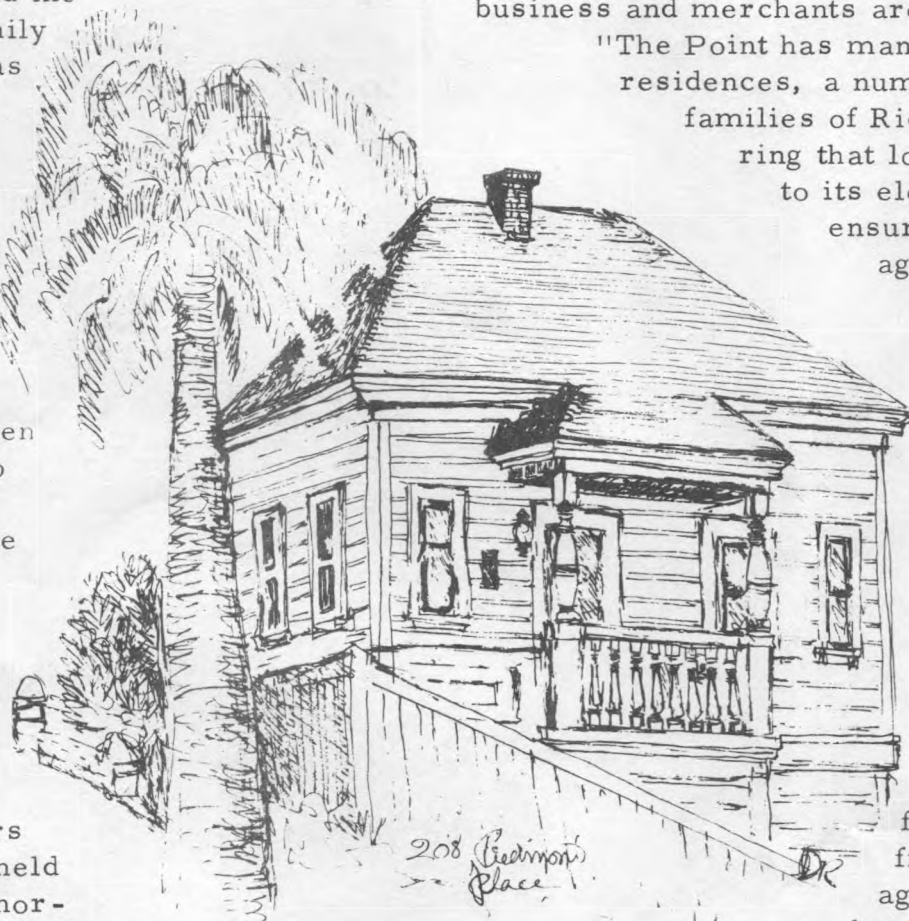 the
ily
as
en
e
rs
held
nor-
business and merchants are
"The Point has man
residences, a num
families of Ric
ring that lo
to its ele
ensur
ag
f
fr
ag
208 Piedmont
Place
DK